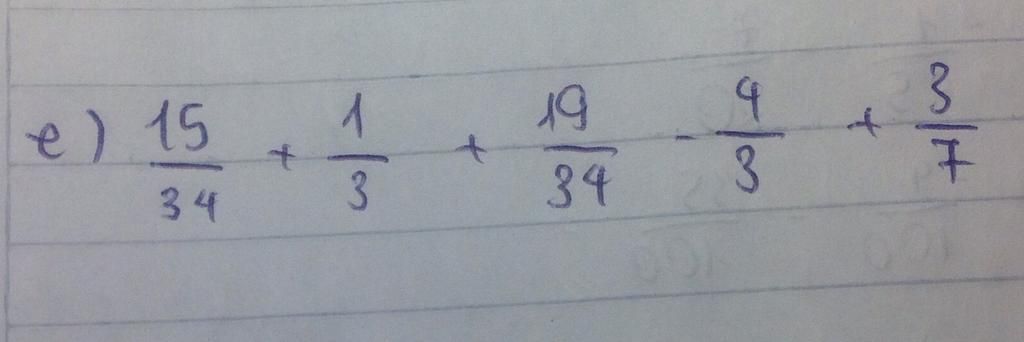 e) 15/34 + 1/3 + 19/34 - 4/3 + 3/7